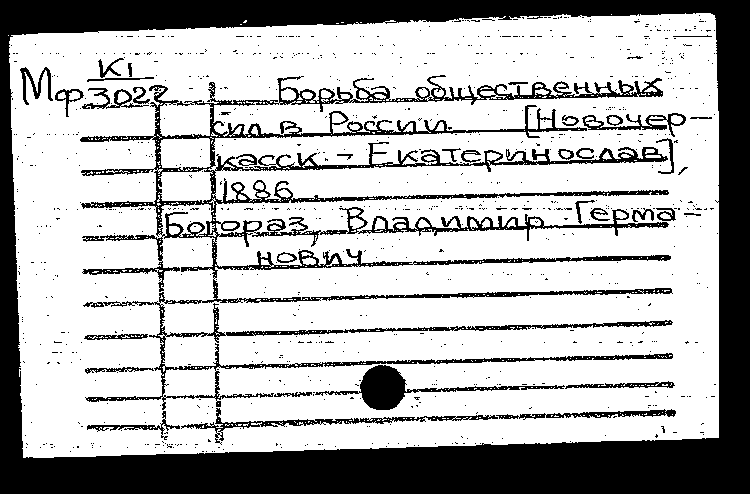 К1
Мф 3022 Борьба общественных
сил в России [Новочер-
касск. - Екатеринослав],
1886.
Богораз, Владимир Герма-
нович